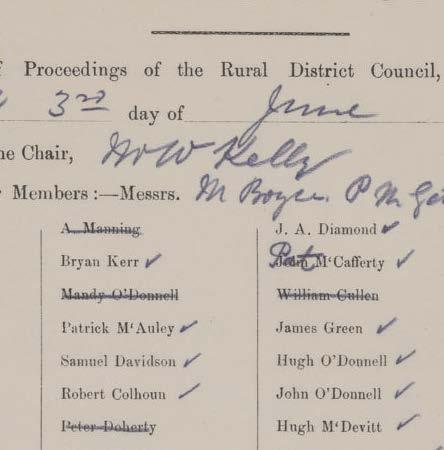 f Proceedings of the Rural District Council,
3rd day of June
he Chair, W Kelly
Members :—Messrs. M Boyce. P
A. Manning
Bryan Kerr ✓
Mandy O'Donnell
Patrick M'Auley ✓
Samuel Davidson ✓
Robert Colhoun ✓
Peter Doherty
J. A. Diamond ✓
Pat M'Cafferty ✓
William Cullen
James Green ✓
Hugh O'Donnell ✓
John O'Donnell ✓
Hugh M'Devitt ✓